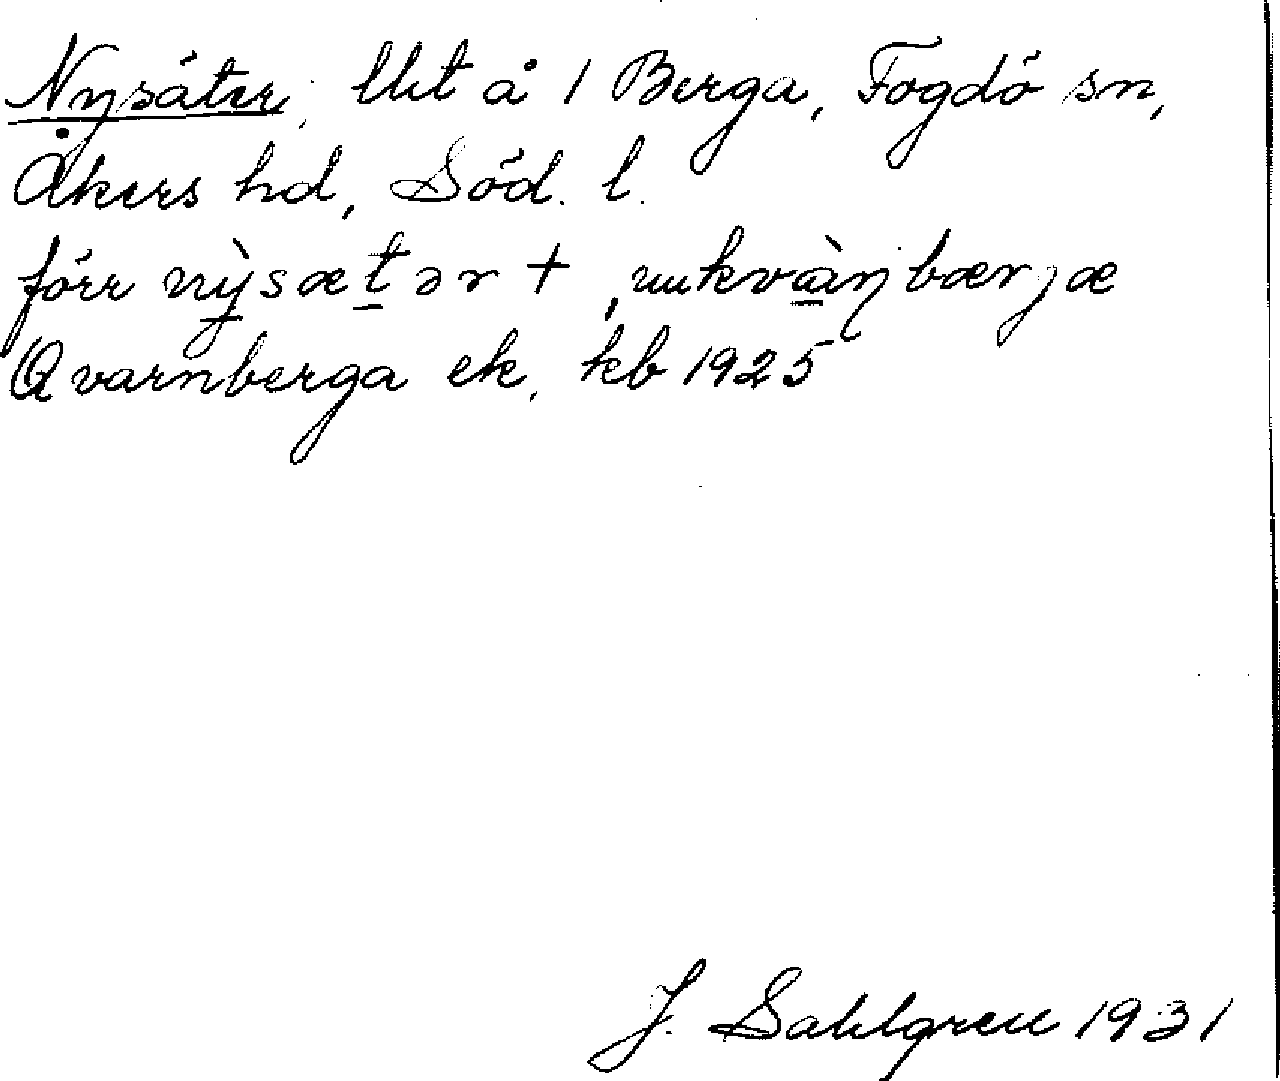 Nysäter, lht å 1 Berga, Fogdö sn,
Åkers hd, Söd. l.
förr nỳsætər + ˌnukvàɳbærjæ
Qvarnberga ek. kb 1925
J. Sahlgren 1931